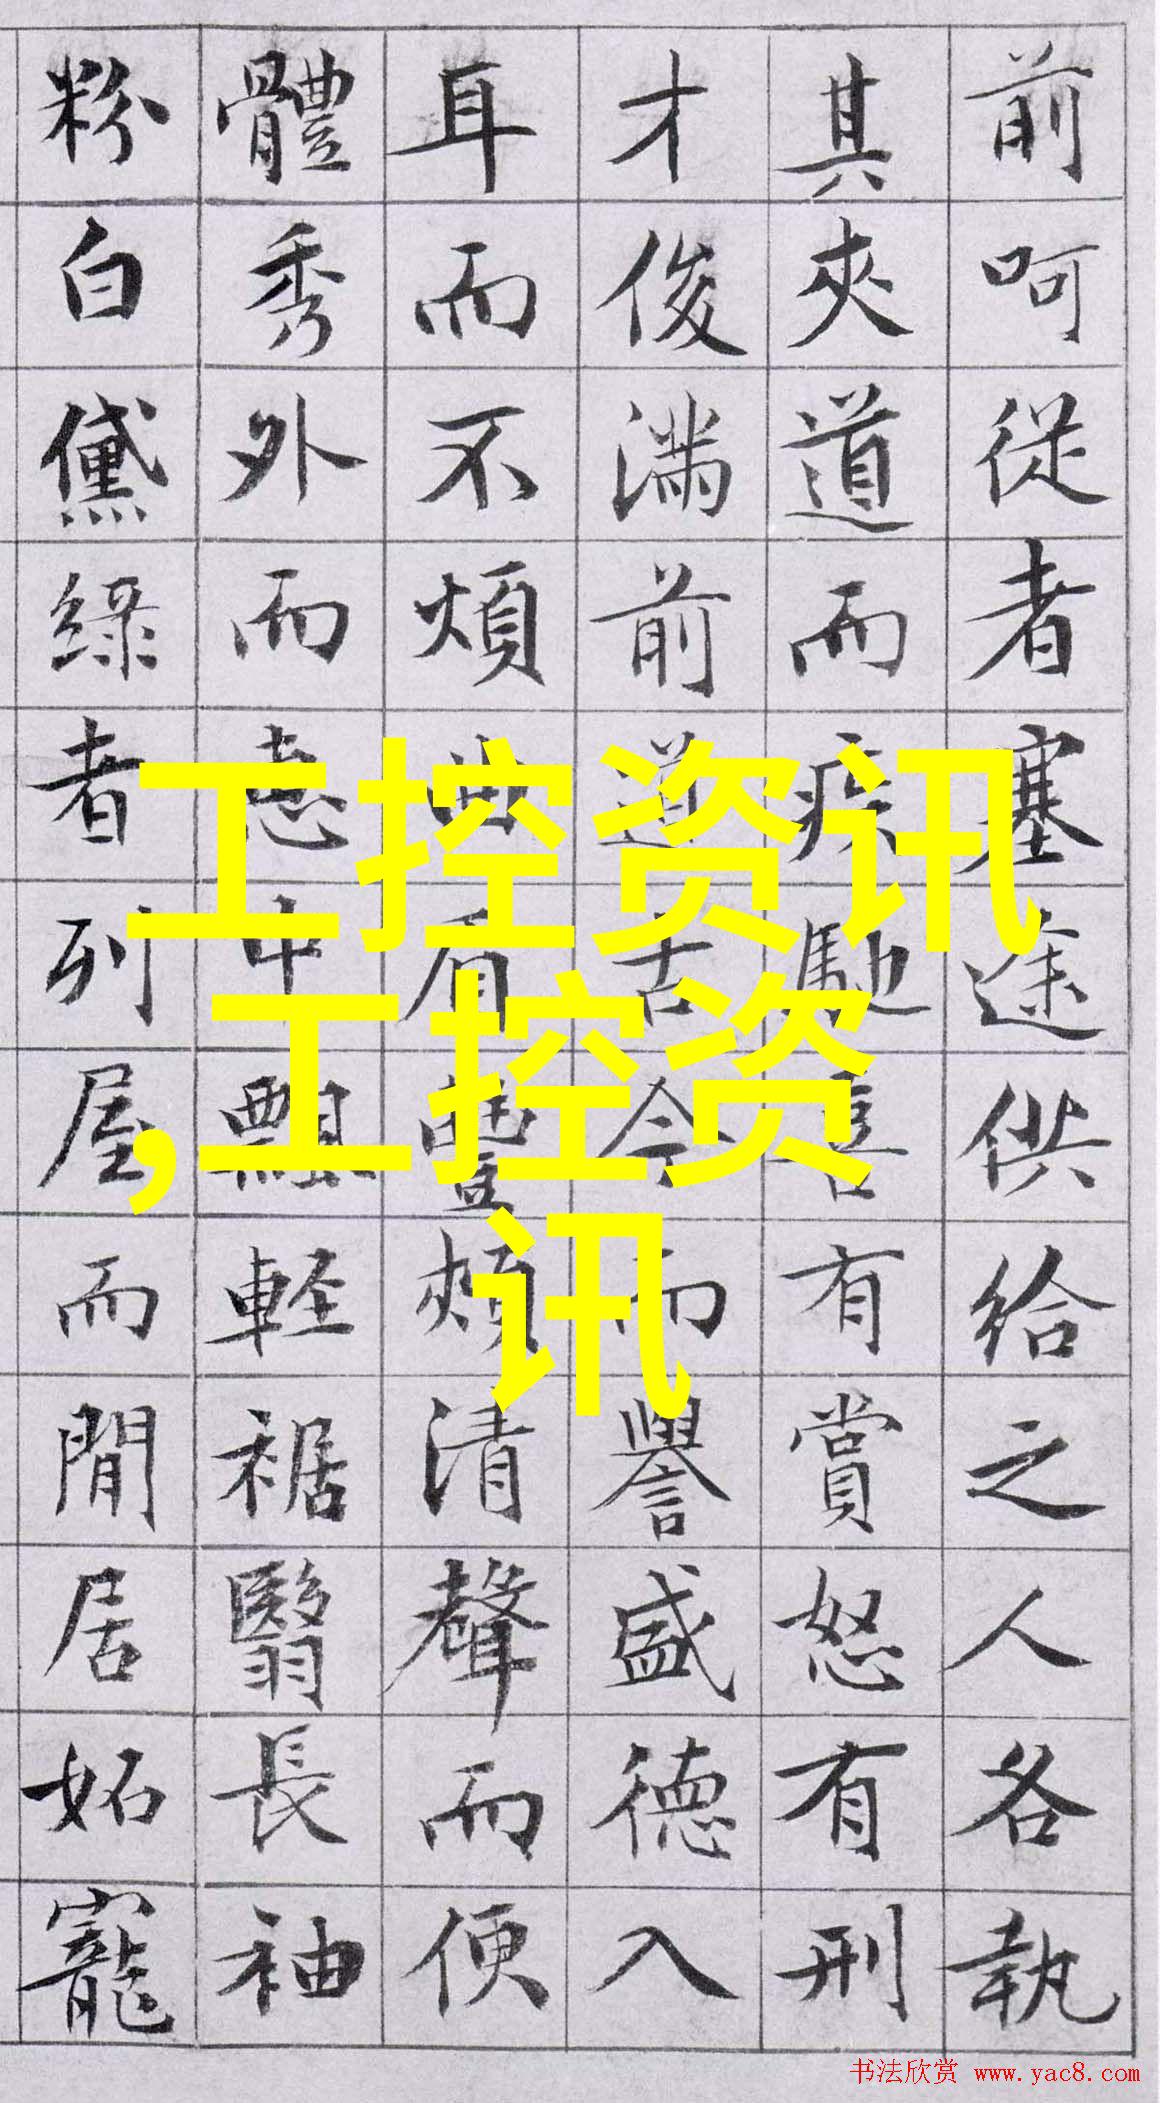 前呵從者塞途供給之人各執
其夾道而疾馳喜有賞怒有刑
才俊滿前道古今而譽盛德入
耳而不煩曲眉豐頰清聲而便
體秀外而惠中飄輕裾翳長袖
粉白黛綠者列屋而閒居妬寵
工控资讯
,工控资
讯
书法欣赏 www.yac8.com